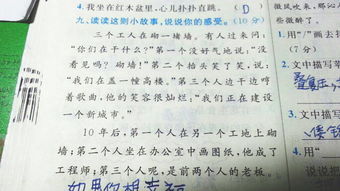 4.我坐在红木盆里,心儿扑扑直跳。 (D)
九、读读这则小故事,说说你的感受。(10分)
三个工人在砌一堵墙。有人过来问:
“你们在干什么?”第一个没好气地说:“没
看见吗?砌墙!”第二个抬头笑了笑,说:
“我们在盖一幢高楼。”第三个人边干边哼
着歌曲,他的笑容很灿烂:“我们正在建设
一个新城市。”
10年后,第一个人在另一个工地上砌
墙;第二个人坐在办公室中画图纸,他成了
工程师;第三个人呢,是前两个人的老板。
如果你想幸福
微风吹来,那
些微醉了。
2.用“/”画去
(7分)
3.文中描写
3.文中描写
4.用“
说说把